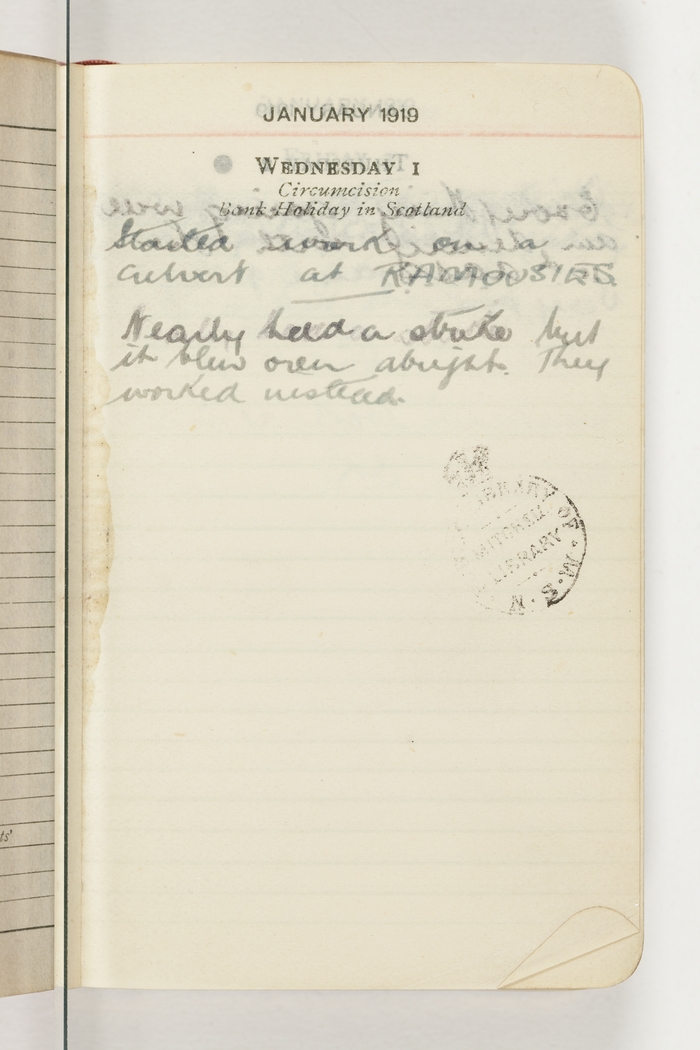 JANUARY 1919
WEDNESDAY 1
Circumcision
Bank Holiday in Scotland
Started work on a
culvert at RAMOUSIES.
Nearly had a strike but
it blew over alright. They
worked instead.
LIBRARY OF N.S.W.
MITCHELL
LIBRARY
ts'